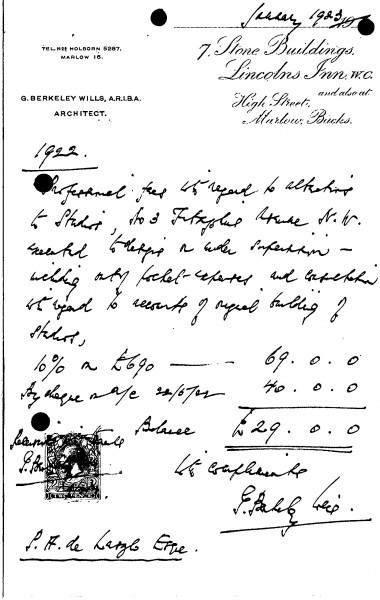 January 1923
TEL. Nos HOLBORN 5287.
MARLOW 16.
7, Stone Buildings,
Lincolns Inn, W.C.
and also at
High Street,
Marlow, Bucks.
G. BERKELEY WILLS, A.R.I.B.A.
ARCHITECT.
1922.
Professional fees with regard to alterations
to Studio, No 3 Fitzjohns Avenue N.W.
executed to design & under supervision –
including out of pocket expenses and consultation
with regard to accounts of original building of
Studio,
10% on £690 — 69. 0. 0
By cheque on a/c 22/5/22 40. 0. 0
Balance £29. 0. 0
With compliments
P. A. de Laszlo Esqre.